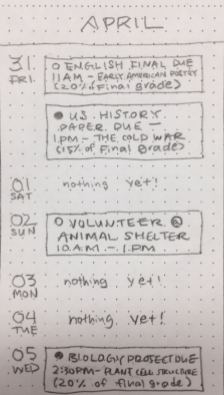 APRIL
31
FRI.
O ENGLISH FINAL DUE
11AM - EARLY AMERICAN POETRY
(20% of final grade)
• U.S. HISTORY
PAPER DUE -
1PM - THE COLD WAR
(15% of final grade)
01
SAT
nothing yet!
02
SUN
O VOLUNTEER @
ANIMAL SHELTER
10AM - 1PM
03
MON
nothing yet!
04
TUE
nothing yet!
05
WED
• BIOLOGY PROJECT DUE
2:30PM - PLANT CELL STRUCTURE
(20% of final grade)